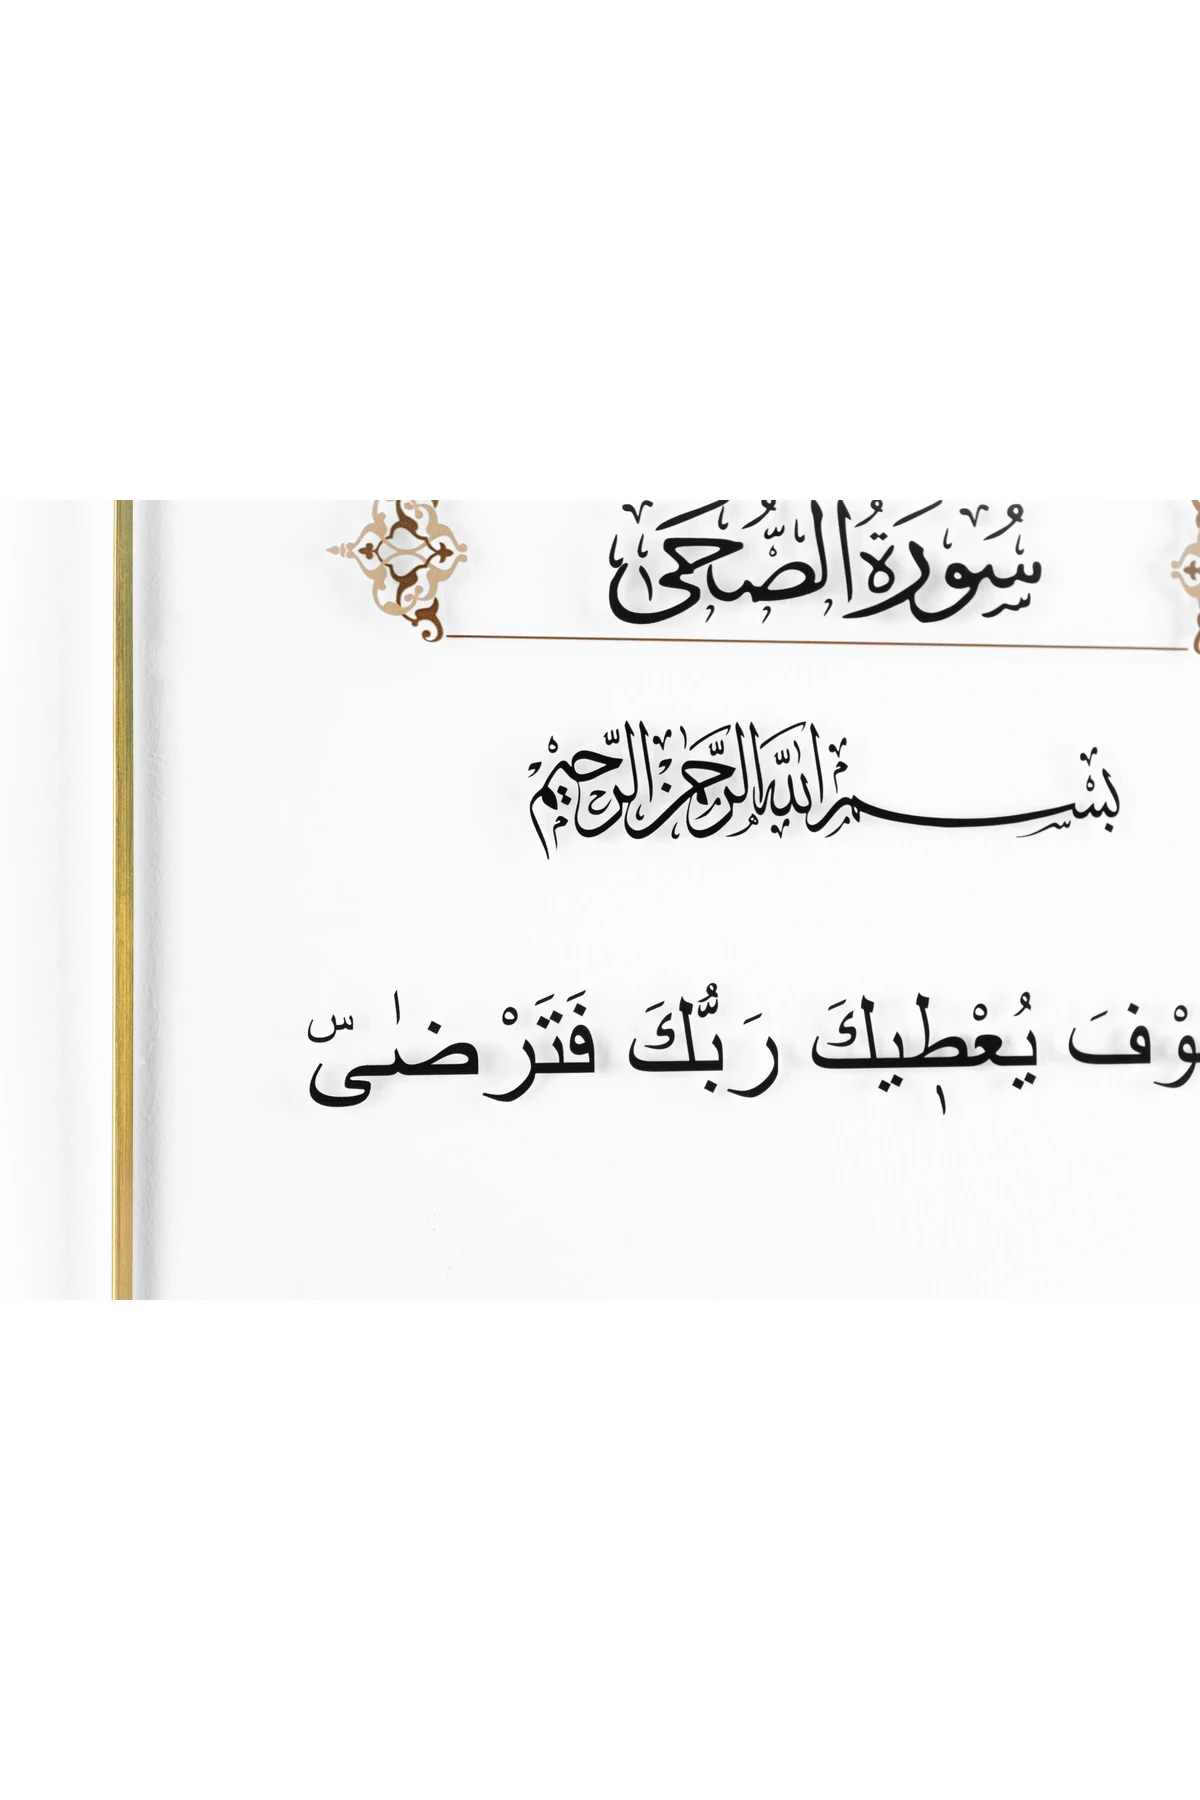 سُورَةُ الضُّحَى
بِسْمِ اللَّهِ الرَّحْمَنِ الرَّحِيمِ
وْفَ يُعْطِيكَ رَبُّكَ فَتَرْضٰىّ س